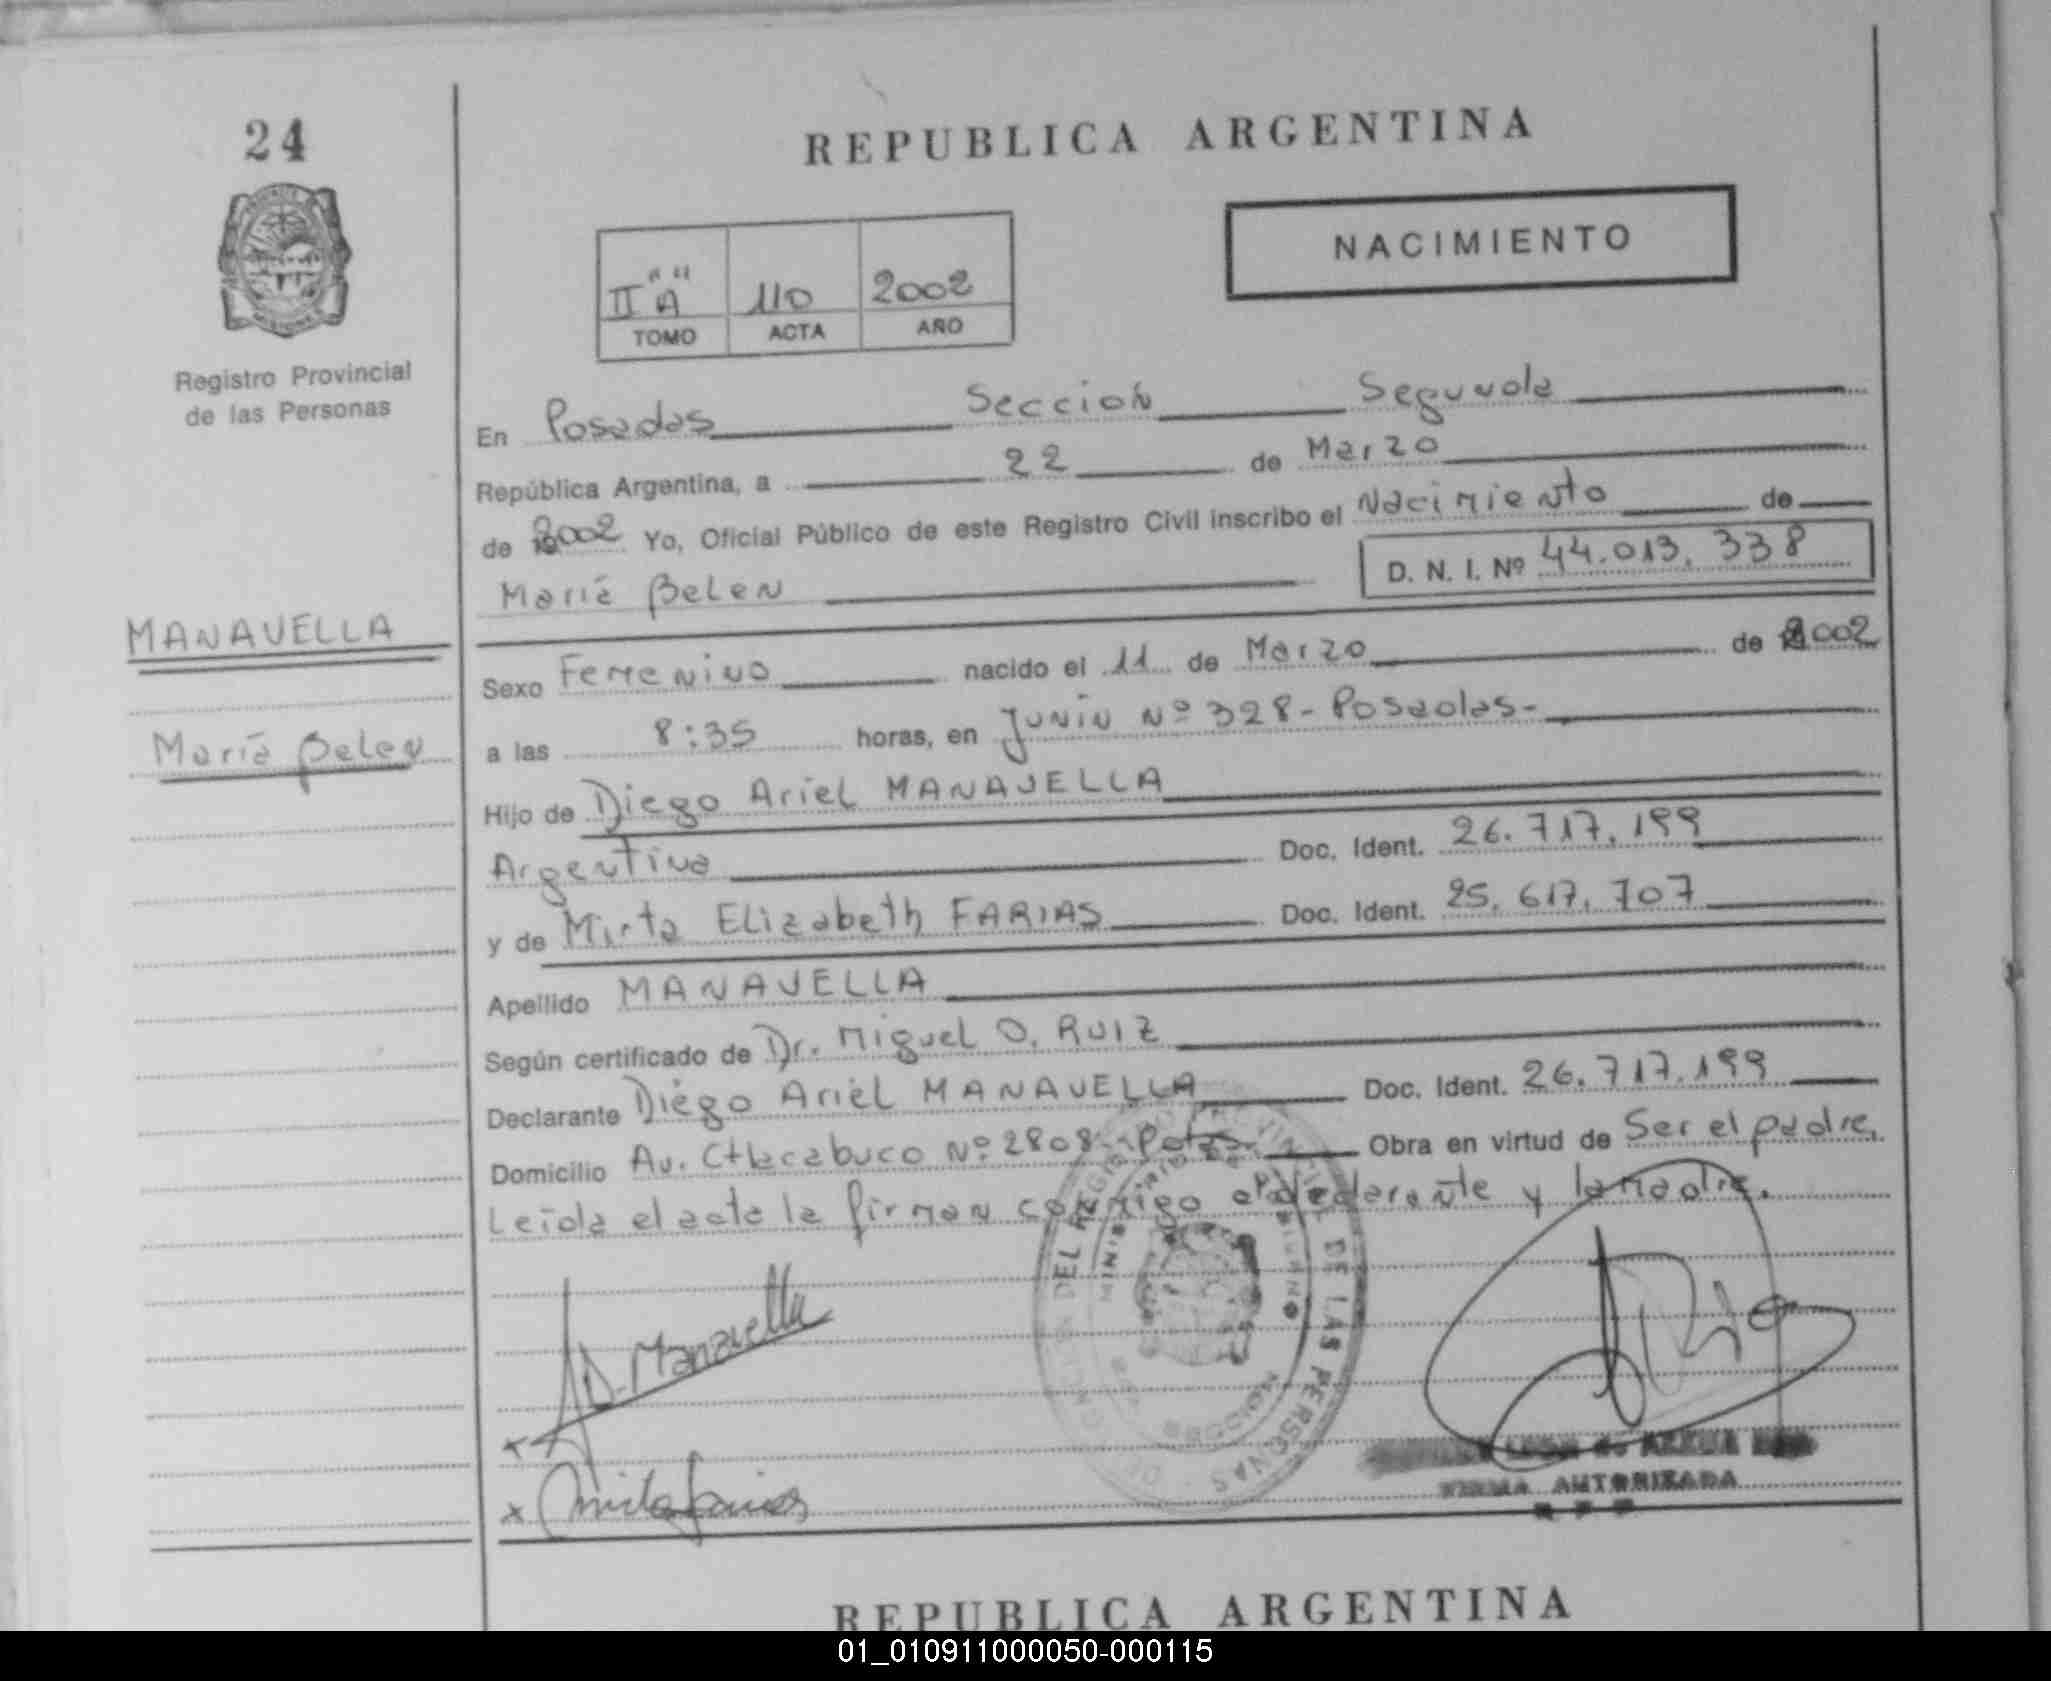 24
REPUBLICA ARGENTINA
NACIMIENTO
II "A" 110 2002
TOMO ACTA AÑO
Registro Provincial
de las Personas
En Posadas Sección Segunda
República Argentina, a 22 de Marzo
de 2002 Yo, Oficial Público de este Registro Civil inscribo el Nacimiento de
María Belen D. N. I. Nº 44.013.338
MANAVELLA
María Belen
Sexo Femenino nacido el 11 de Marzo de 2002
a las 8:35 horas, en Junín Nº 328- Posadas-
Hijo de Diego Ariel MANAVELLA
Argentina Doc. Ident. 26.717.199
y de Mirta Elizabeth FARIAS Doc. Ident. 25.617.707
Apellido MANAVELLA
Según certificado de Dr. Miguel O. RUIZ
Declarante Diego Ariel MANAVELLA Doc. Ident. 26.717.199
Domicilio Av. Chacabuco Nº 2808- Obra en virtud de Ser el padre.
Leída el acta la firman conmigo el declarante y la madre.
DEL REGISTRO PROVINCIAL DE LAS PERSONAS
D. Manavella
FIRMA AUTORIZADA
REPUBLICA ARGENTINA
01_010911000050-000115